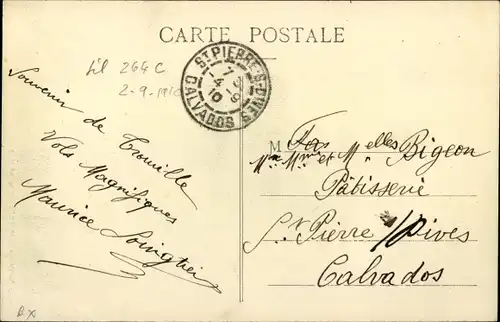 CARTE POSTALE
Lil 264 C
2-9-1910
ST PIERRE-S-DIVES
7
4
10
CALVADOS
Souvenir
de Trouville
Vols Magnifiques
Maurice
M
Mr Mme et Melles Bigeon
Pâtisserie
St Pierre s/Dives
Calvados
B.X